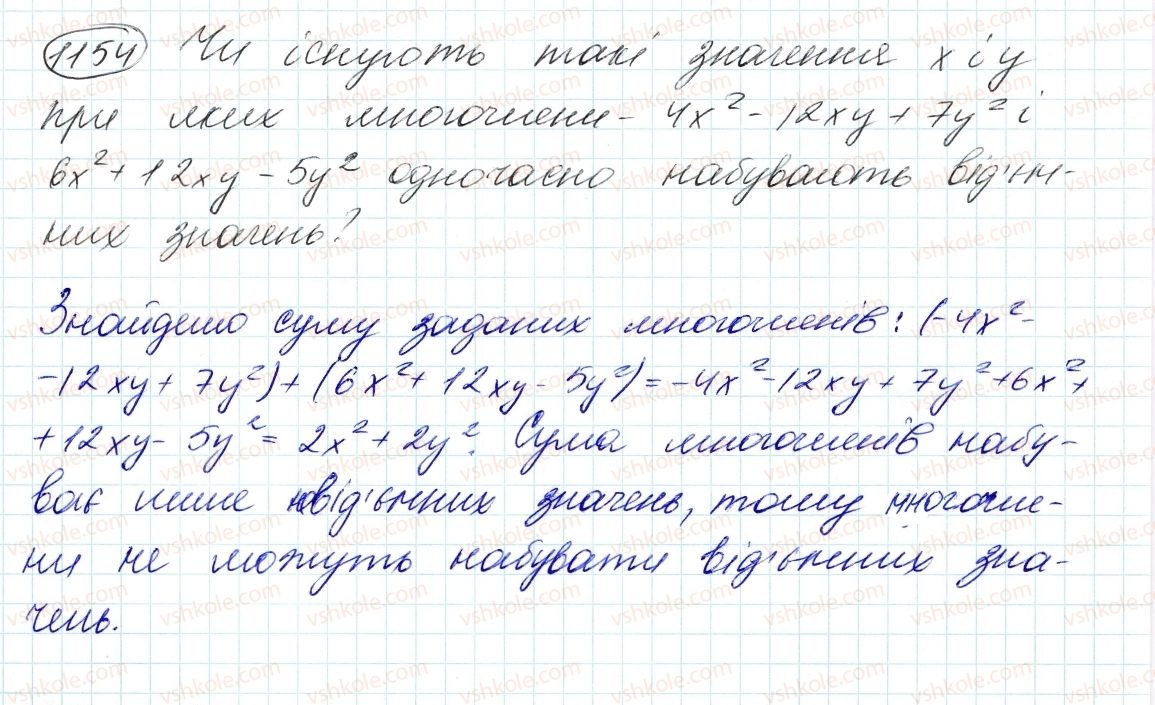 1154 Чи існують такі значення x і y
при яких многочлени -4x² - 12xy + 7y² і
6x² + 12xy - 5y² одночасно набувають від'єм-
них значень?
Знайдемо суму заданих многочленів: (-4x² -
-12xy + 7y²) + (6x² + 12xy - 5y²) = -4x² - 12xy + 7y² + 6x² +
+ 12xy - 5y² = 2x² + 2y². Сума многочленів набу-
ває лише невід'ємних значень, тому многочле-
ни не можуть набувати від'ємних зна-
чень.
vshkole.com